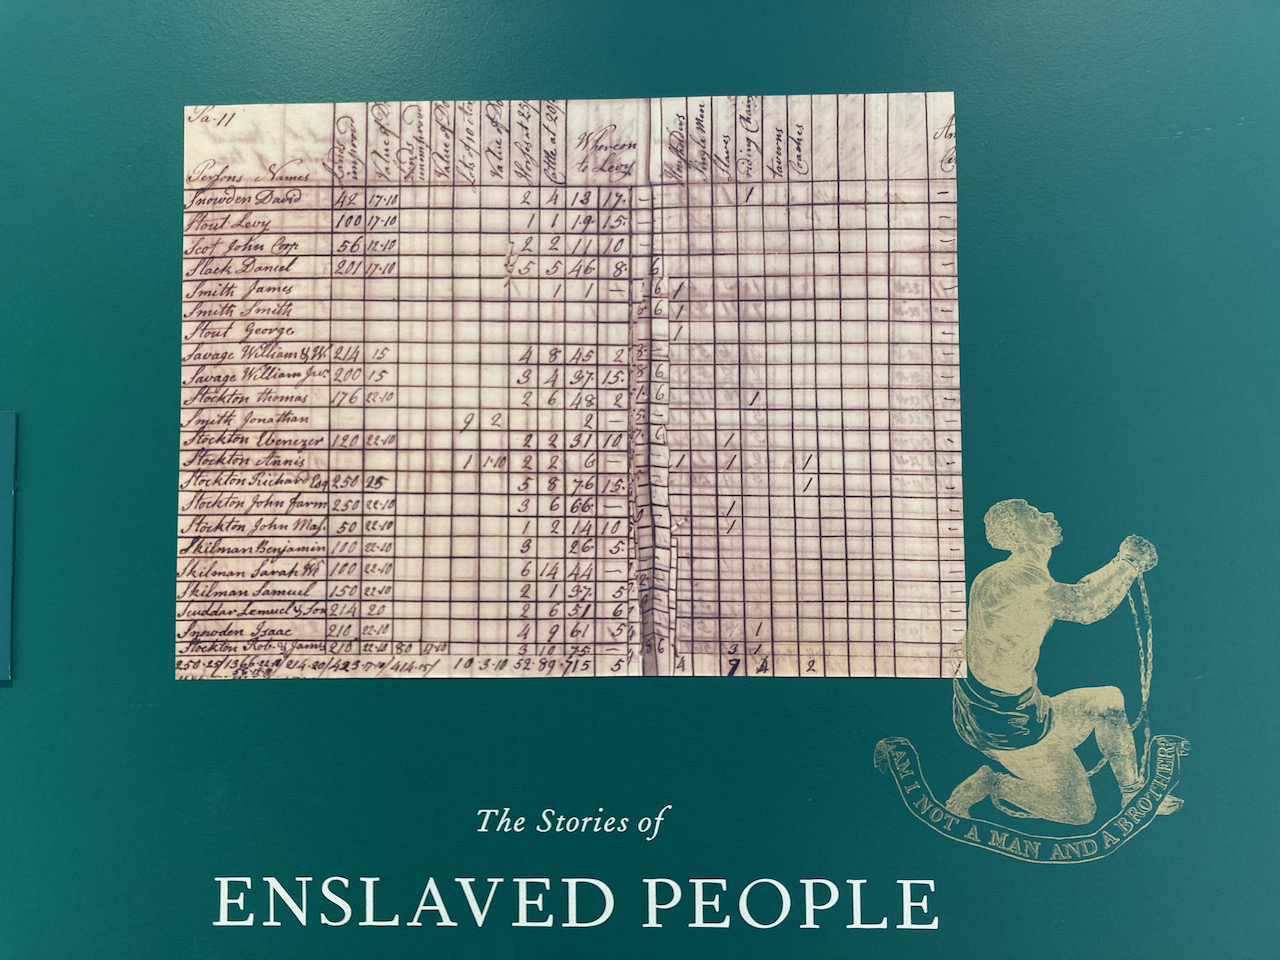 Persons Names
Lands improved
Value of Do
Lands unimproved
Value of Do
Value of Do
Cattle at 20/
Whereon to Levy
Single Men
Slaves
riding Chairs
taverns
Coaches
Snowden David 42 17·10 2 4 13 17· 1
Stout Levy 100 17·10 1 1 19 15
Scot John Corp 56 12·10 2 2 11 10
Slack Daniel 201 17·10 5 5 46 8
Smith James 1 1 — 1
Smith Smith 1
Stout George 1
Savage William 214 15 4 8 45 2
Savage William Jur 200 15 3 4 37 15
Stockton thomas 176 22·10 2 6 48 2 1
Smith Jonathan 9 2 2 —
Stockton Ebenezer 120 22·10 2 2 31 10 1
Stockton Annis 1 1·10 2 2 6 — 1 1 1
Stockton Richard Esq 250 25 5 8 76 15 1
Stockton John farm 250 22·10 3 6 66 — 1
Stockton John Maj. 50 22·10 1 2 14 10 1
Skilman Benjamin 100 22·10 3 26 5
Skilman Sarah 100 22·10 6 14 44 —
Skilman Samuel 150 22·10 2 1 37 5
Scuddar Lemuel & Son 214 20 2 6 51 6
Snowden Isaac 210 22·10 4 9 61 5 1
Stockton Rob. & James 210 22·10 80 17·10 3 10 75 — 3 1
10 3·10 52 89 715 5 4 7 4 2
AM I NOT A MAN AND A BROTHER
The Stories of
ENSLAVED PEOPLE